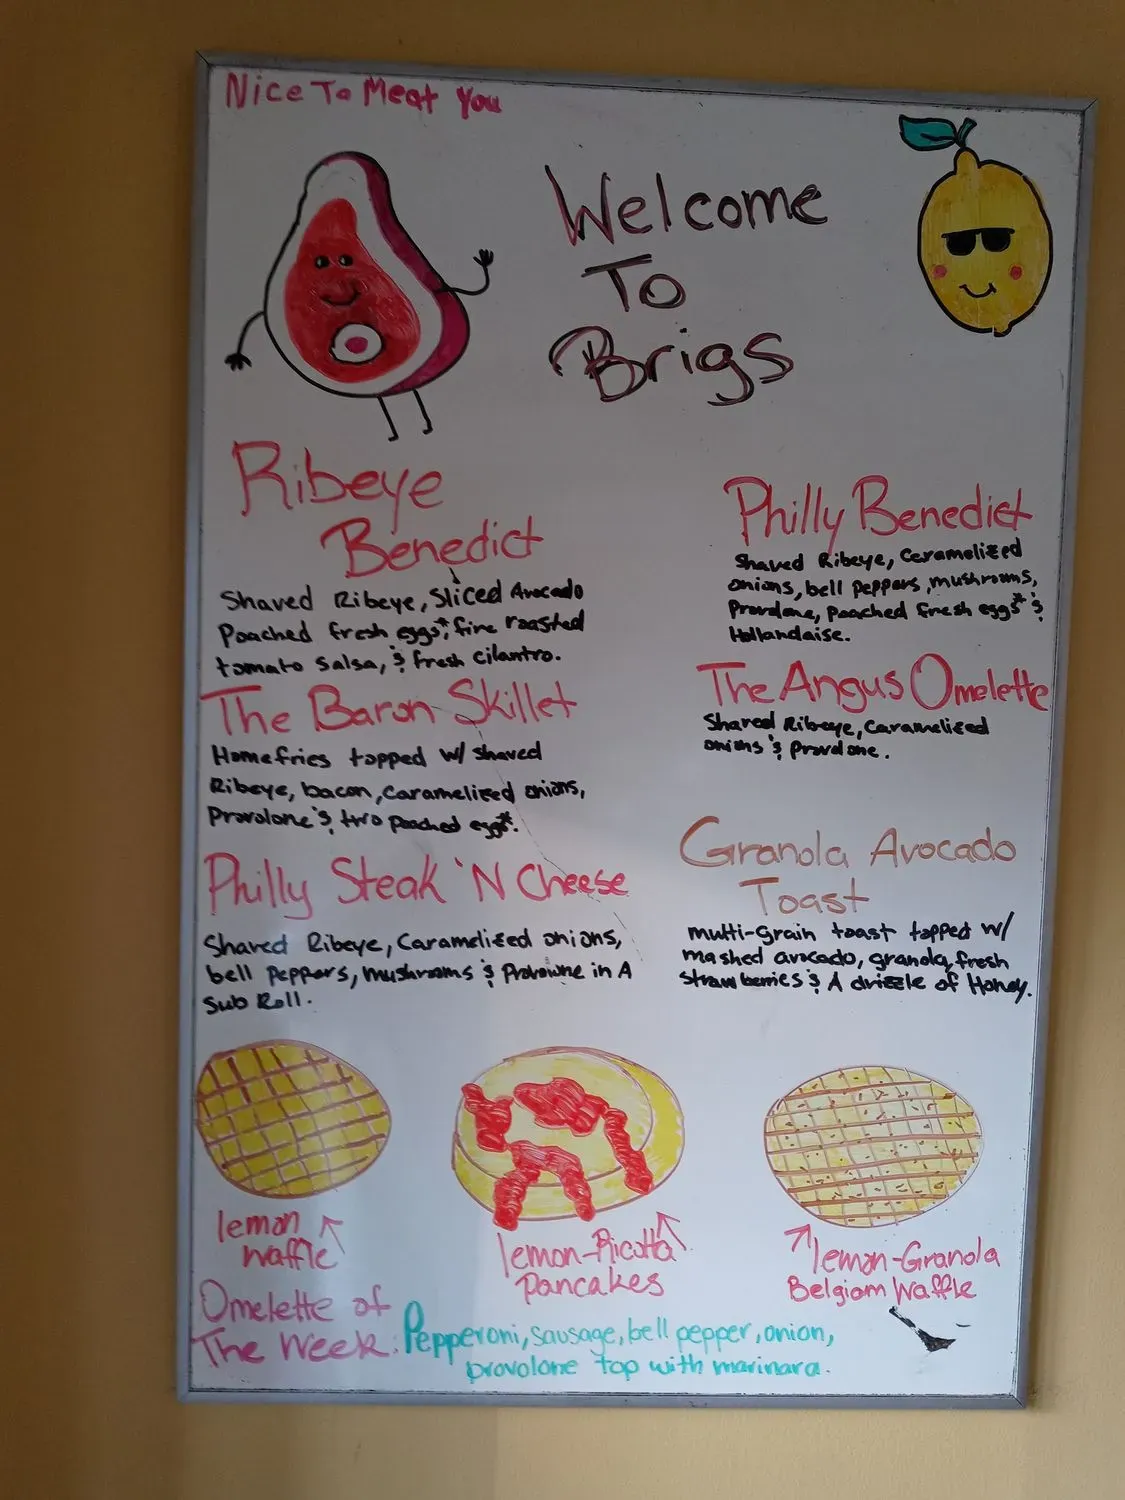 Nice To Meat You
Welcome
To
Brigs
Ribeye
Benedict
Shaved Ribeye, Sliced Avocado
Poached fresh eggs*, fire roasted
tomato salsa, & fresh cilantro.
The Baron Skillet
Homefries topped w/ shaved
Ribeye, bacon, caramelized onions,
Provolone & two poached eggs*.
Philly Steak 'N Cheese
Shaved Ribeye, Caramelized onions,
bell peppers, mushrooms & Provowne in A
Sub Roll.
Philly Benedict
Shaved Ribeye, Ceramelized
onions, bell peppers, mushrooms,
Provolone, poached fresh eggs* &
Hollandaise.
The Angus Omelette
Shaved Ribeye, Caramelized
onions & Provolone.
Granola Avocado
Toast
multi-Grain toast topped w/
mashed avocado, granola, fresh
strawberries & A drizzle of Honey.
lemon
waffle
lemon-Ricotta
Pancakes
lemon-Granola
Belgiom Waffle
Omelette of
The Week: Pepperoni, sausage, bell pepper, onion,
provolone top with marinara.